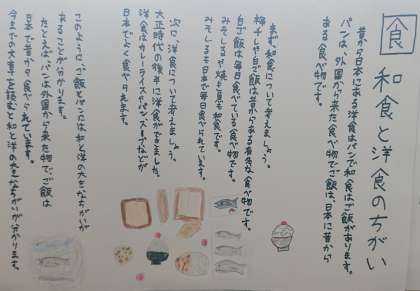 食 和食と洋食のちがい
昔から日本にある洋食はパンで和食はご飯があります。
パンは、外国から来た食べ物でご飯は、日本に昔から
ある食べ物です。
まず、和食について考えましょう。
梅干しや白ご飯は昔からある有名な食べ物です。
白ご飯は毎日食べている食べ物です。
みそしるや焼き魚も和食です。
みそしるも日本で毎日食べられています。
次に、洋食について考えましょう。
大正時代の後半に洋食がでました。
洋食はカレーライスやパン、スープなどが
日本でよく食べられます。
このように、ご飯とパンには和と洋の大きなちがいが
あることが分かります。
たとえばパンは外国から来た物でご飯は
日本で昔から食べられています。
今までの文章を読むと和と洋の大きなちがいが分かります。